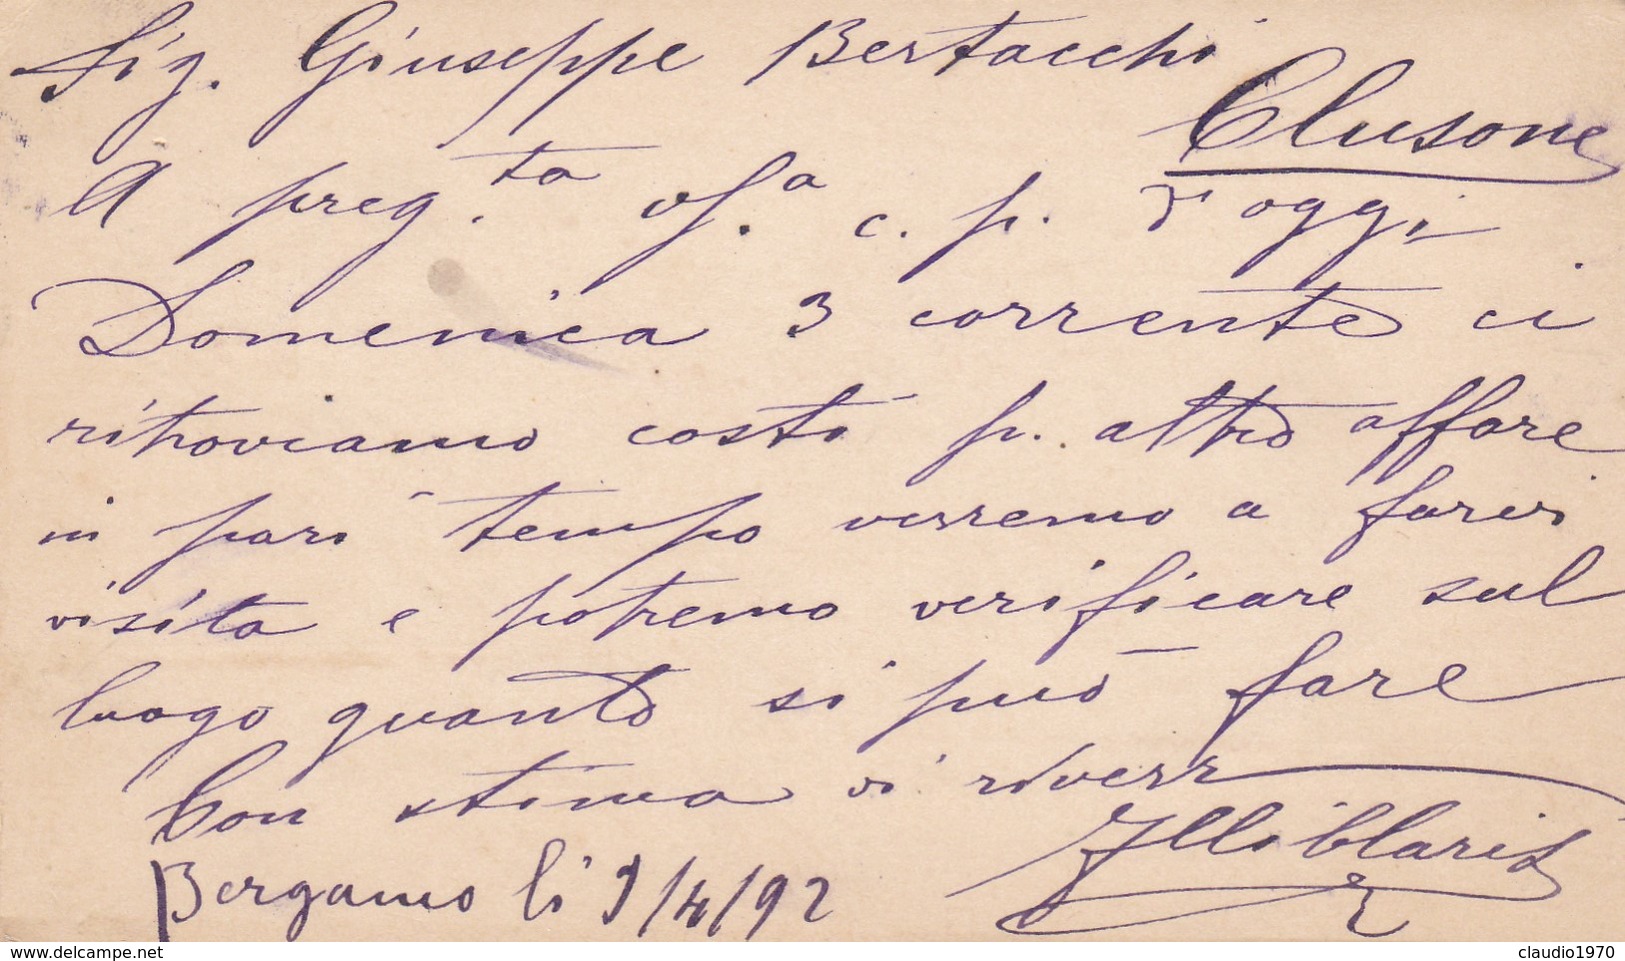 Sig. Giuseppe Bertacchi
Clusone
A preg.ta vs.a c. p. d'oggi
Domenica 3 corrente ci
ritroviamo costì p. altro affare
in pari tempo verremo a farvi
visita e potremo verificare sul
luogo quanto si può fare
Con stima vi river
Flli Claris
Bergamo li 1/4/92
delcampe.net
claudio1970